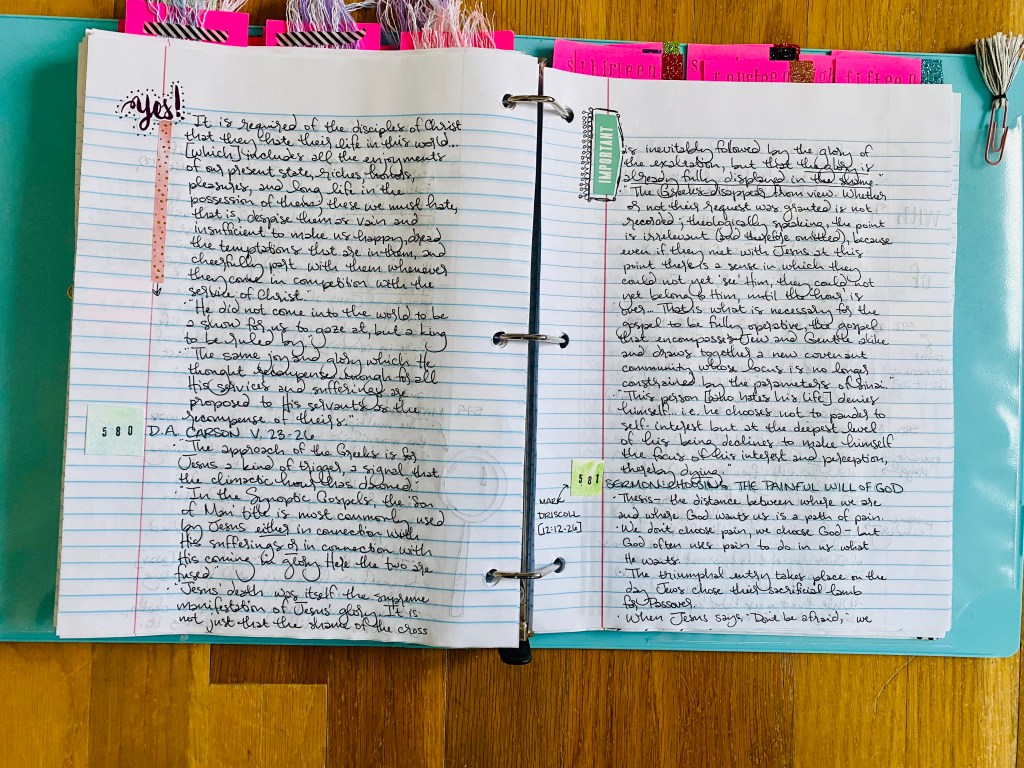 sthirteen
fourteen
fifteen
yes!
"It is required of the disciples of Christ
that they hate their life in this world...
[which] includes all the enjoyments
of our present state, riches, honors,
pleasures, and long life in the
possession of them; these we must hate,
that is, despise them as vain and
insufficient to make us happy, dread
the temptations that are in them, and
cheerfully part with them whenever
they come in competition with the
service of Christ."
"He did not come into the world to be
a show for us to gaze at, but a king
to be ruled by."
"The same joy and glory which He
thought recompense enough for all
His services and sufferings are
proposed to His servants as the
recompense of theirs."
580
D.A. CARSON V. 23-26
"The approach of the Greeks is for
Jesus a kind of trigger, a signal that
the climactic hour has dawned."
"In the Synoptic Gospels, the 'Son
of Man' title is most commonly used
by Jesus either in connection with
His sufferings or in connection with
His coming in glory. Here the two are
fused."
"Jesus' death was itself the supreme
manifestation of Jesus' glory. It is
not just that the shame of the cross
IMPORTANT
is inevitably followed by the glory of
the exaltation, but that the glory is
already fully displayed in the shame."
"The Greeks disappear from view. Whether
or not their request was granted is not
recorded; theologically speaking, the point
is irrelevant (and therefore omitted), because
even if they met with Jesus at this
point there is a sense in which they
could not yet 'see' Him, they could not
yet belong to Him, until the 'hour' is
over... That is what is necessary for the
gospel to be fully operative, the gospel
that encompasses Jew and Gentile alike
and draws together a new covenant
community whose locus is no longer
constrained by the parameters of Sinai."
"This person [who hates his life] denies
himself... i.e. he chooses not to pander to
self-interest but at the deepest level
of his being declines to make himself
the focus of his interest and perception,
thereby dying."
581
SERMON: CHOOSING THE PAINFUL WILL OF GOD
MARK
DRISCOLL
[12-12-26]
Thesis - the distance between where we are
and where God wants us is a path of pain.
We don't choose pain, we choose God - but
God often uses pain to do in us what
He wants.
The triumphal entry takes place on the
day Jews chose their sacrificial lamb
for Passover.
When Jesus says, "Don't be afraid," we